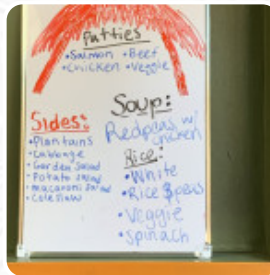 Patties
•Salmon •Beef
•Chicken •Veggie
Sides:
•Plantains
•Cabbage
•Garden Salad
•Potato salad
•macaroni Salad
•Coleslaw
Soup:
Redpeas w/
chicken
Rice:
•White
•Rice & peas
•Veggie
•Spinach